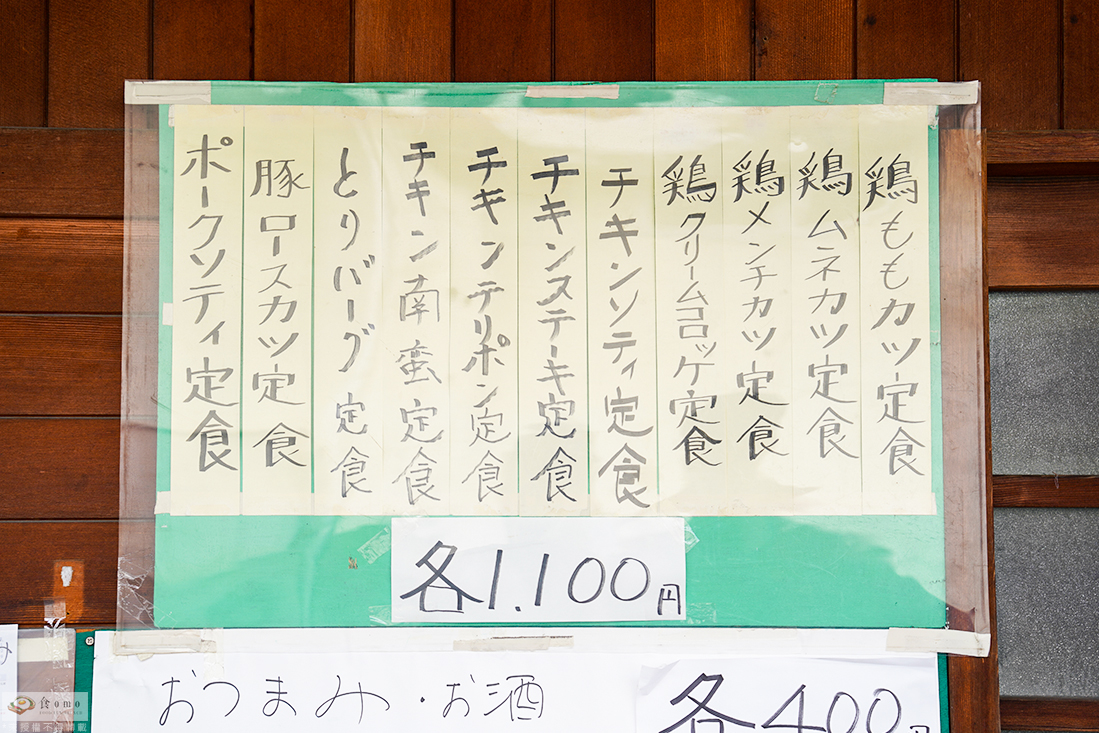 鶏ももカツ定食
鶏ムネカツ定食
鶏メンチカツ定食
鶏クリームコロッケ定食
チキンソティ定食
チキンステーキ定食
チキンテリポン定食
チキン南蛮定食
とりバーグ定食
豚ロースカツ定食
ポークソティ定食
各1.100円
おつまみ・お酒
各400円
食omo